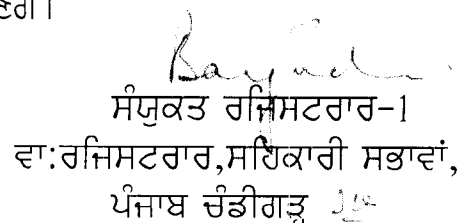 ਸੰਯੁਕਤ ਰਜਿਸਟਰਾਰ-1
ਵਾ:ਰਜਿਸਟਰਾਰ,ਸਹਿਕਾਰੀ ਸਭਾਵਾਂ,
ਪੰਜਾਬ ਚੰਡੀਗੜ੍ਹ